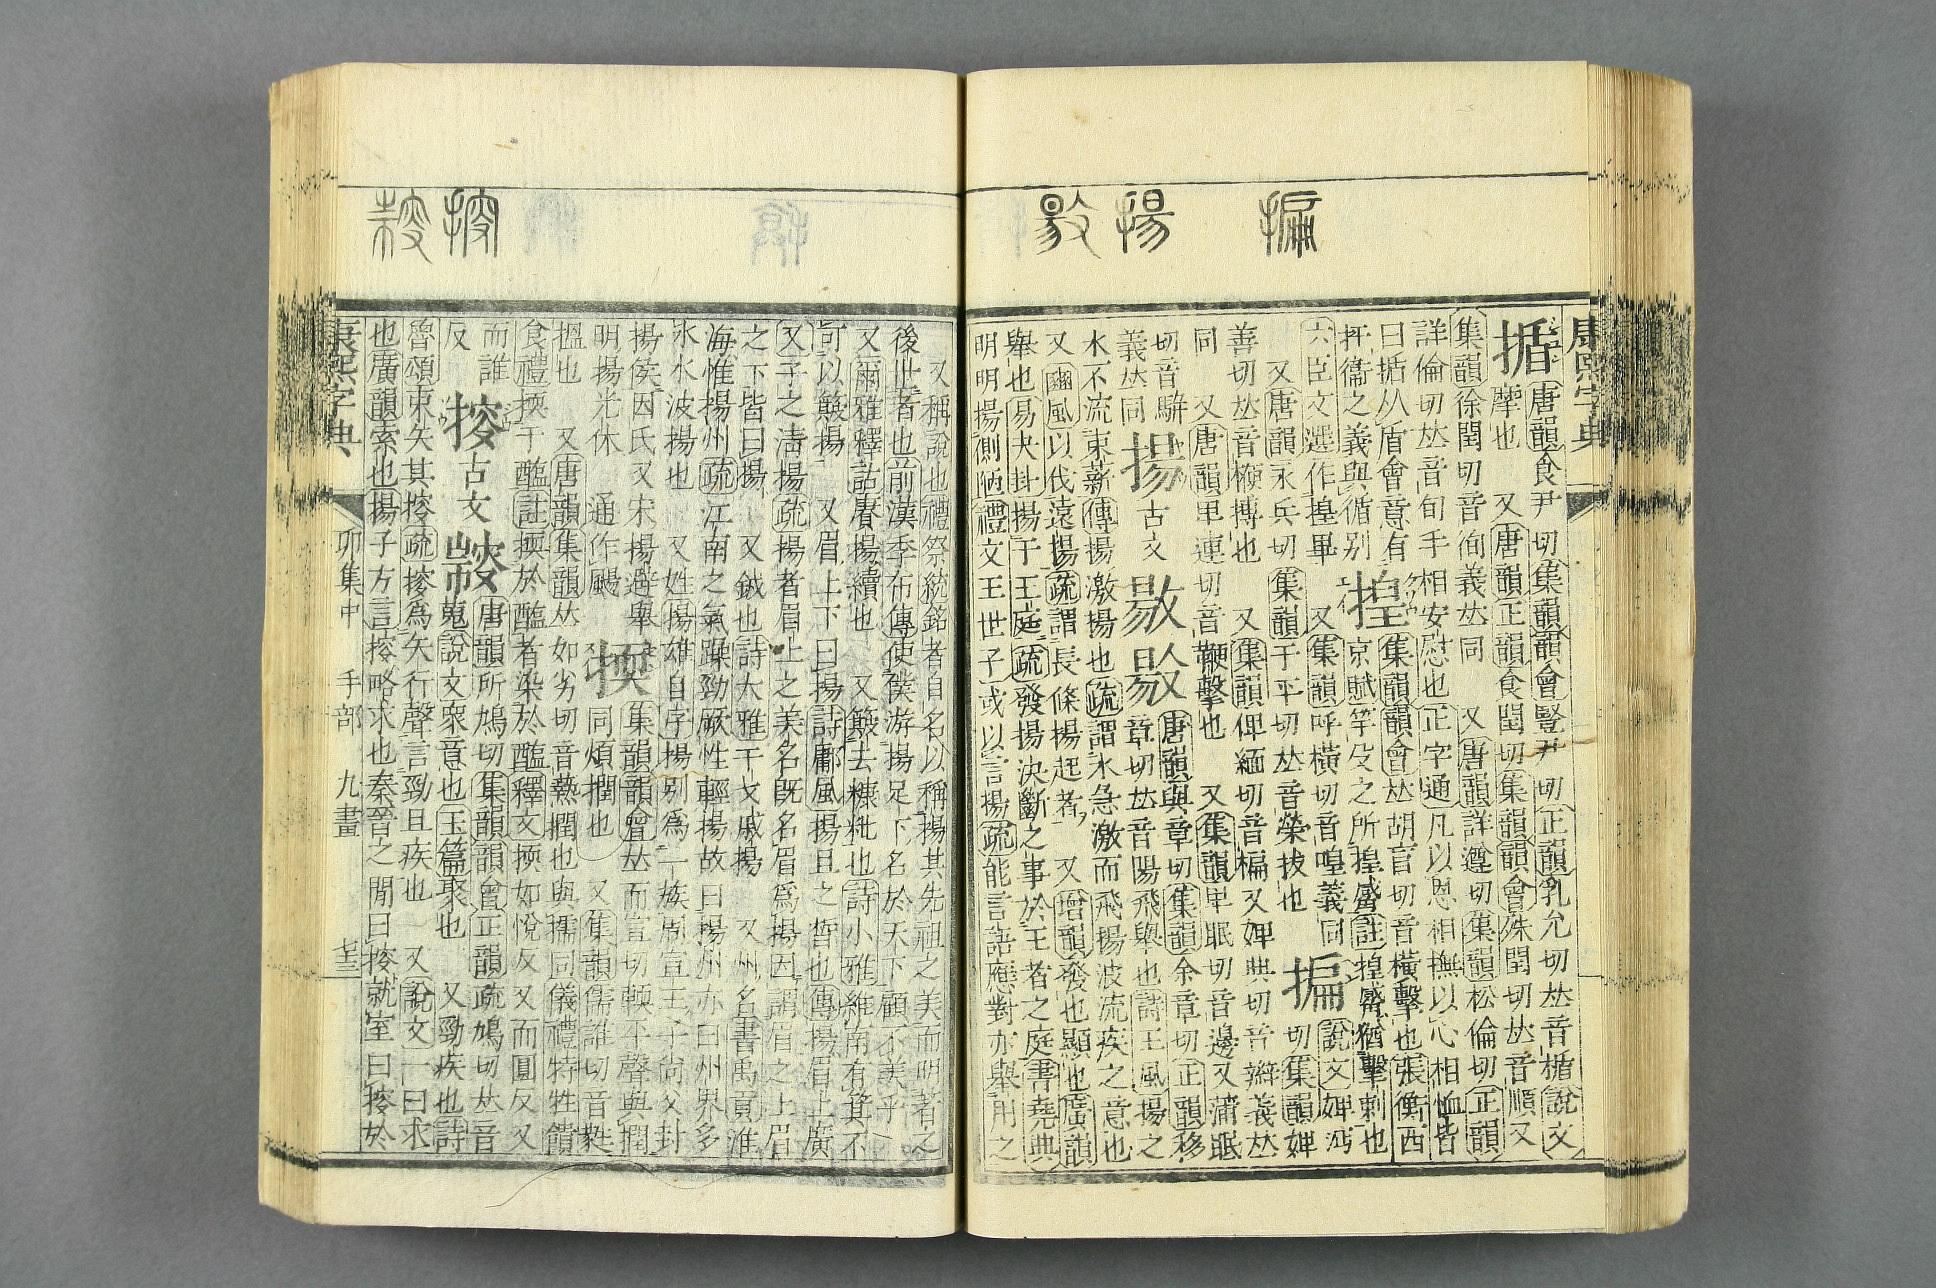 康熙字典
揗 唐韻食尹切集韻韻會豎尹切正韻乳允切𠀤音楯說文
摩也 又唐韻正韻食閏切集韻韻會殊閏切𠀤音順又
集韻徐閏切音侚義𠀤同 又唐韻詳遵切集韻松倫切正韻
詳倫切𠀤音旬手相安慰也正字通凡以恩相撫以心相恤皆
曰揗从盾會意有 揘 集韻韻會𠀤胡盲切音橫擊也張衡西
扞衞之義與循別 京賦竿殳之所揘畢註揘畢猶擊刺也
六臣文選作揘畢 又集韻呼橫切音喤義同 揙 說文婢沔
又唐韻永兵切集韻于平切𠀤音榮拔也 切集韻婢
善切𠀤音楩搏也 又集韻俾緬切音楄又婢典切音辮義𠀤
同 又唐韻卑連切音鞭擊也 又集韻卑眠切音邊又蒲眠
切音騈 揚 古文 敭 唐韻與章切集韻余章切正韻移
義𠀤同 章切𠀤音陽飛舉也詩王風揚之
水不流束薪傳揚激揚也疏謂水急激而飛揚波流疾之意也
又豳風以伐遠揚疏謂長條揚起者 又增韻發也顯也廣韻
舉也易夬卦揚于王庭疏發揚決斷之事於王者之庭書堯典
明明揚側陋禮文王世子或以言揚疏能言語應對亦舉用之
又稱說也禮祭統銘者自名以稱揚其先祖之美而明著之
後世者也前漢季布傳使僕游揚足下名於天下顧不美乎
又爾雅釋詁賡揚續也 又簸去糠粃也詩小雅維南有箕不
可以簸揚 又眉上下曰揚詩鄘風揚且之晳也傳揚眉上廣
又子之淸揚疏揚者眉上之美名旣名眉爲揚因謂眉之上眉
之下皆曰揚 又鉞也詩大雅干戈戚揚 又州名書禹貢淮
海惟揚州疏江南之氣躁勁厥性輕揚故曰揚州亦曰州界多
水水波揚也 又姓揚雄自序揚別爲一族周宣王子尚父封
揚侯因氏又宋揚避舉 㨎 集韻韻會𠀤而宣切輭平聲與撋
明揚光休 通作颺 同煩撋也 又集韻儒誰切音甤
搵也 又唐韻集韻𠀤如劣切音爇撋也與擩同儀禮特牲饋
食禮㨎于醢註㨎於醢者染於醢釋文㨎如悅反又而圓反又
而誰 捘 古文 唐韻所鳩切集韻韻會正韻疏鳩切𠀤音
反 蒐說文衆意也玉篇聚也 又勁疾也詩
魯頌束矢其搜疏搜爲矢行聲言勁且疾也 又說文一曰求
也廣韻索也揚子方言搜略求也秦晉之閒曰搜就室曰搜於
康熙字典 卯集中 手部 九畫